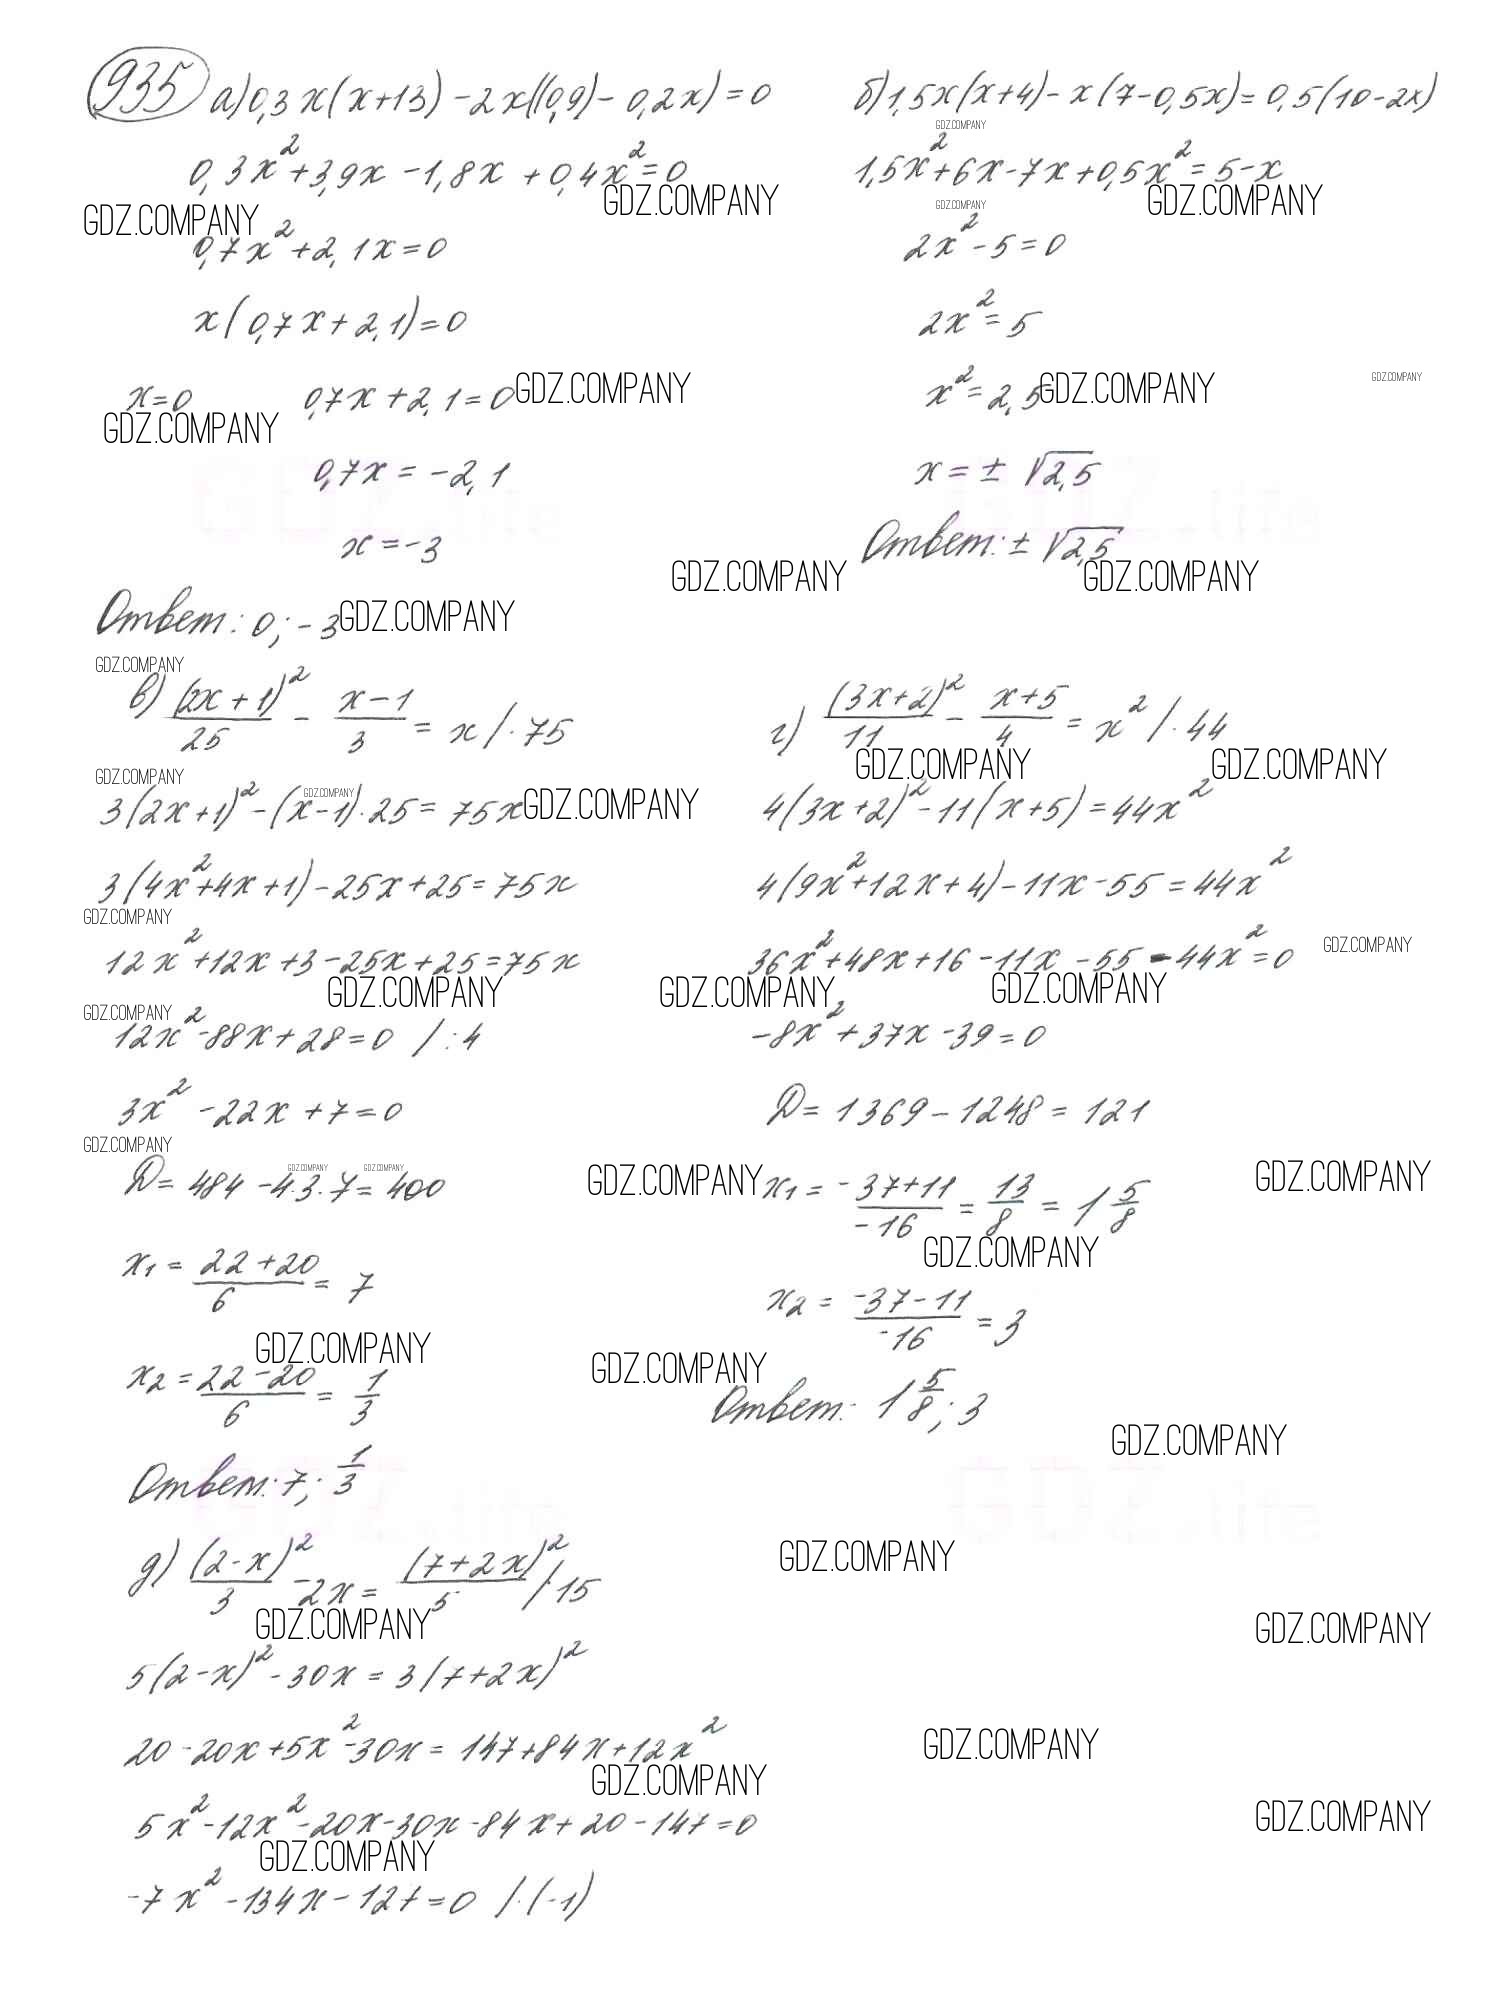 935 а) 0,3x(x+13) - 2x((0,9) - 0,2x) = 0
0,3x² + 3,9x - 1,8x + 0,4x² = 0
0,7x² + 2,1x = 0
x(0,7x + 2,1) = 0
x = 0 0,7x + 2,1 = 0
0,7x = -2,1
x = -3
Ответ: 0; -3
б) 1,5x(x+4) - x(7-0,5x) = 0,5(10-2x)
1,5x² + 6x - 7x + 0,5x² = 5 - x
2x² - 5 = 0
2x² = 5
x² = 2,5
x = ± √2,5
Ответ: ± √2,5
в) (2x+1)²/25 - (x-1)/3 = x /· 75
3(2x+1)² - (x-1)·25 = 75x
3(4x²+4x+1) - 25x + 25 = 75x
12x² + 12x + 3 - 25x + 25 = 75x
12x² - 88x + 28 = 0 / : 4
3x² - 22x + 7 = 0
D = 484 - 4·3·7 = 400
x₁ = (22+20)/6 = 7
x₂ = (22-20)/6 = 1/3
Ответ: 7; 1/3
г) (3x+2)²/11 - (x+5)/4 = x² /· 44
4(3x+2)² - 11(x+5) = 44x²
4(9x²+12x+4) - 11x - 55 = 44x²
36x² + 48x + 16 - 11x - 55 - 44x² = 0
-8x² + 37x - 39 = 0
D = 1369 - 1248 = 121
x₁ = (-37+11)/-16 = 13/8 = 1 5/8
x₂ = (-37-11)/-16 = 3
Ответ: 1 5/8; 3
д) (2-x)²/3 - 2x = (7+2x)²/5 /· 15
5(2-x)² - 30x = 3(7+2x)²
20 - 20x + 5x² - 30x = 147 + 84x + 12x²
5x² - 12x² - 20x - 30x - 84x + 20 - 147 = 0
-7x² - 134x - 127 = 0 /· (-1)
GDZ.COMPANY
GDZ.life